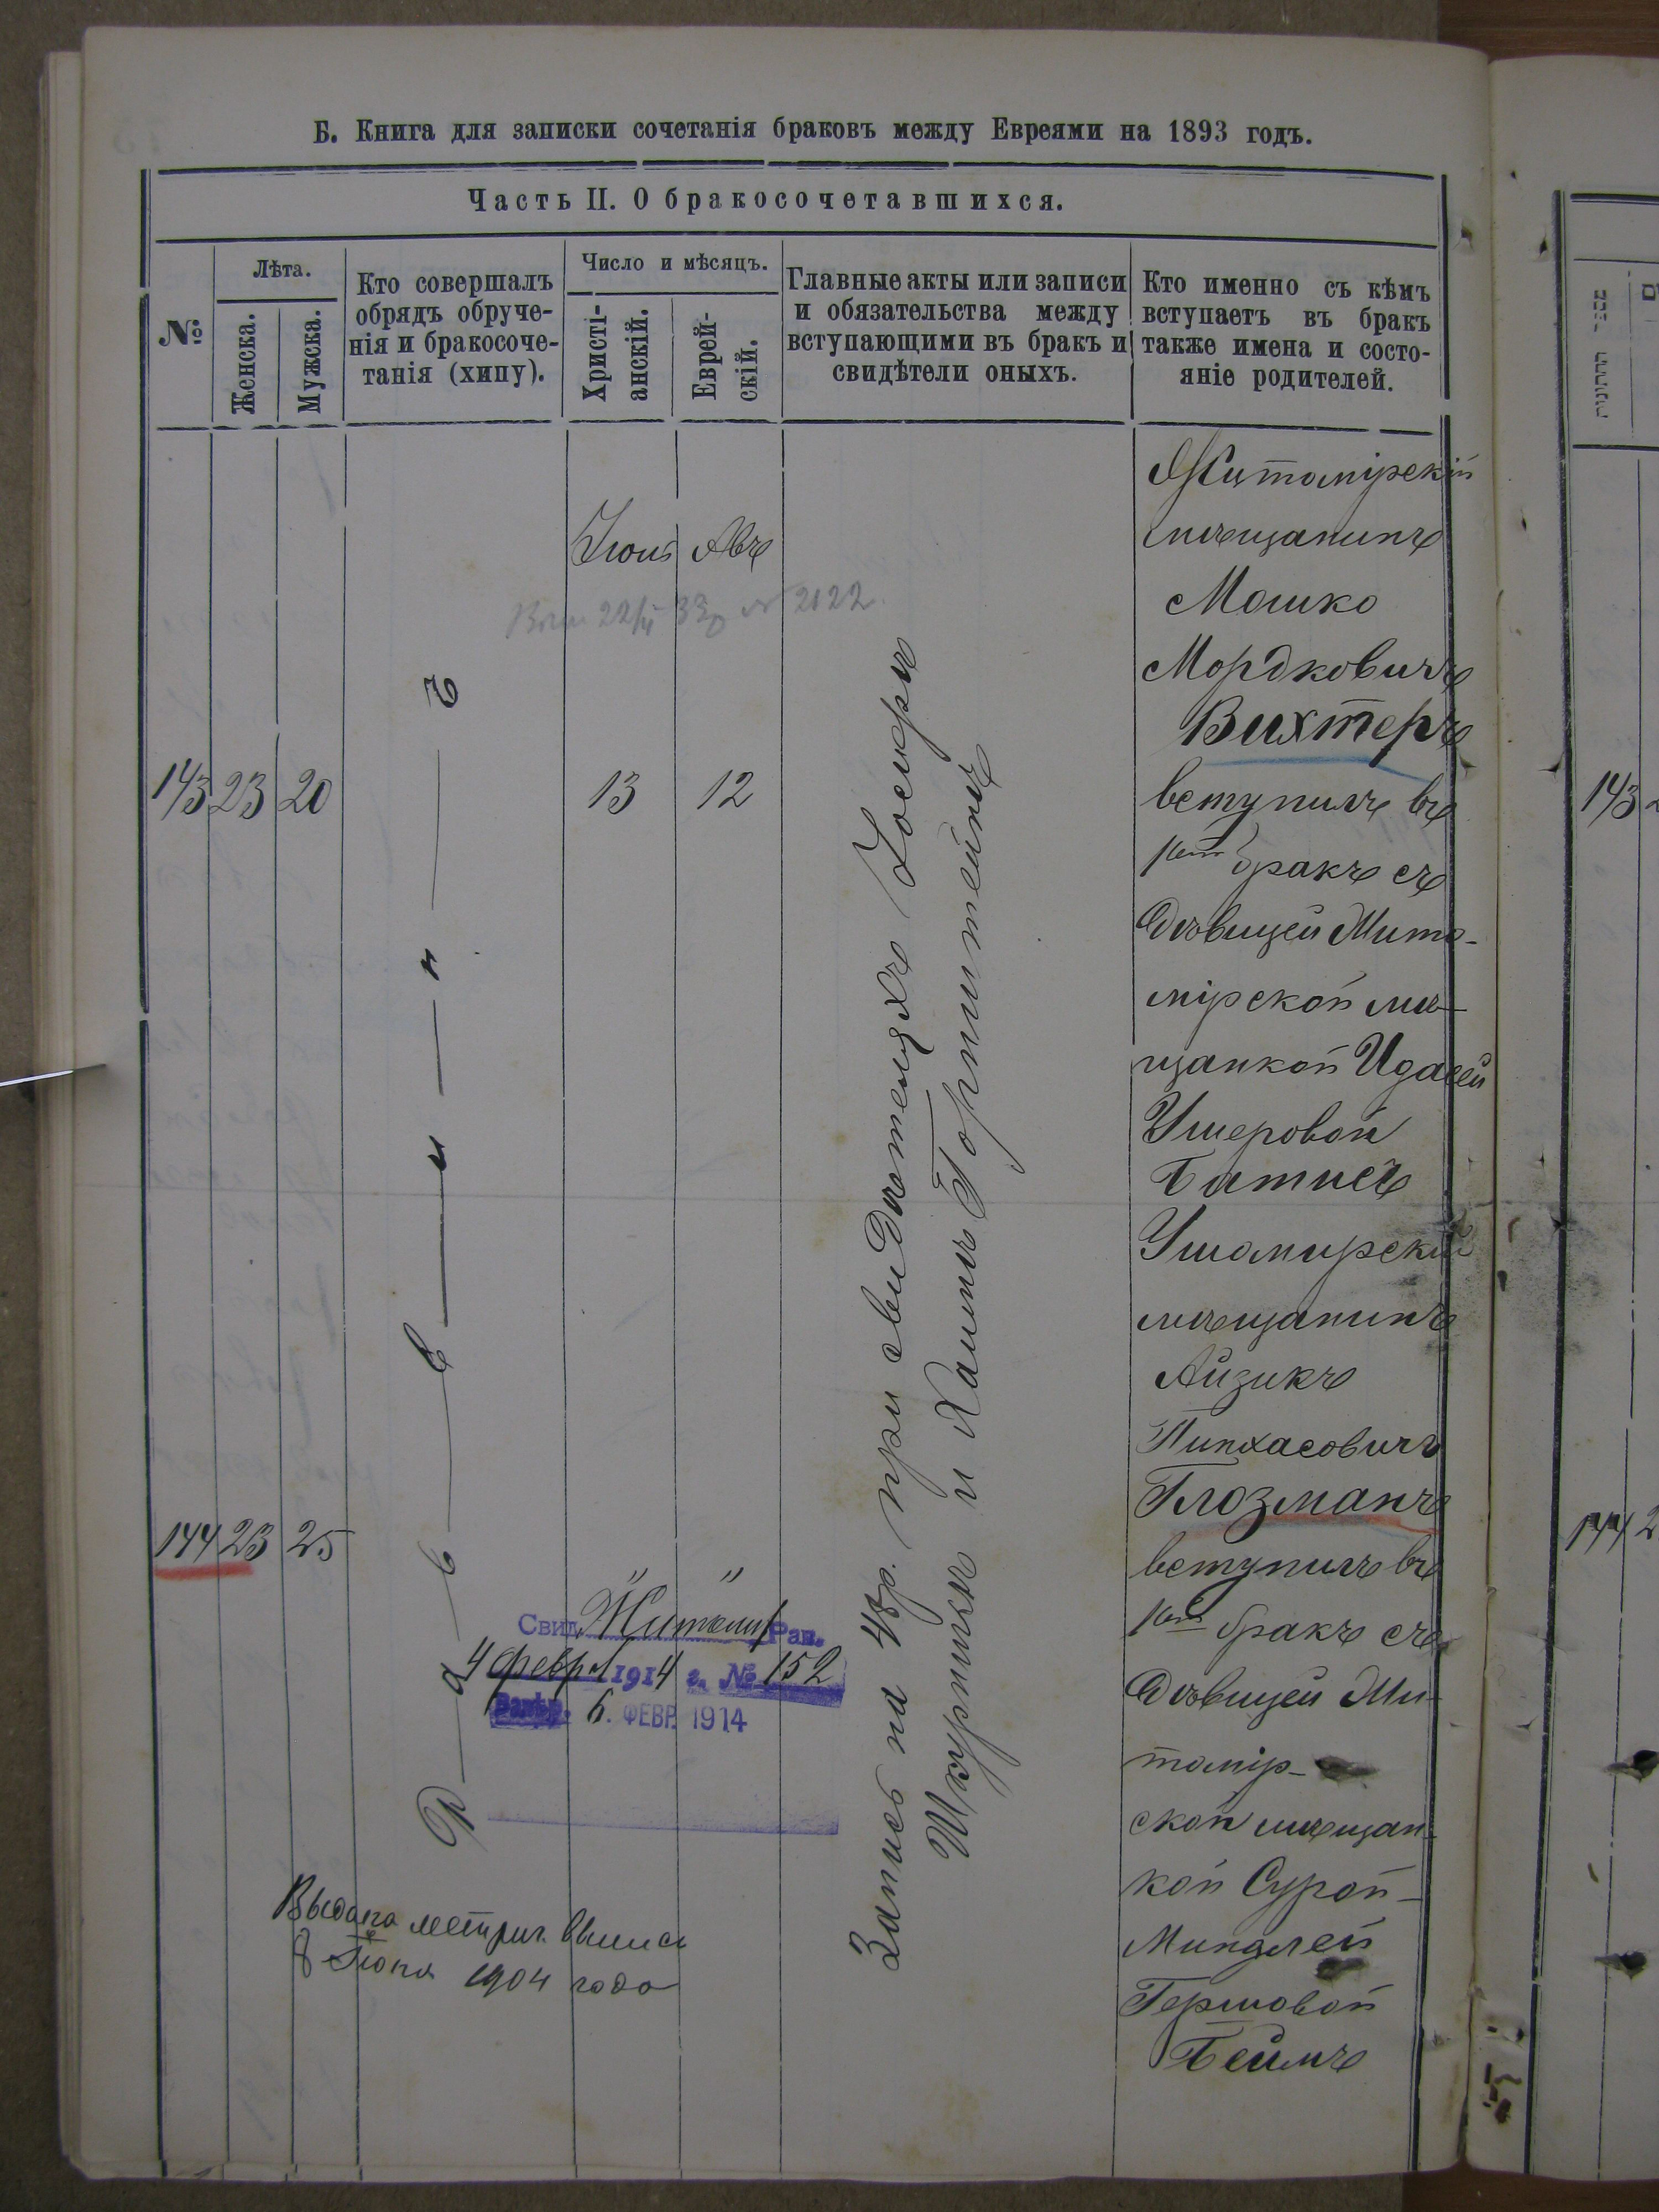 Б. Книга для записки сочетанія браковъ между Евреями на 1893 годъ.
Часть II. О бракосочетавшихся.
№
Лѣта.
Женска.
Мужска.
Кто совершалъ
обрядъ обруче-
нія и бракосоче-
танія (хипу).
Число и мѣсяцъ.
Христі-
анскій.
Еврей-
скій.
Главные акты или записи
и обязательства между
вступающими въ бракъ и
свидѣтели оныхъ.
Кто именно съ кѣмъ
вступаетъ въ бракъ
также имена и состо-
яніе родителей.
Раввинъ
Запись на 48 р. при свидѣтеляхъ Іосифѣ
Шкурникѣ и Хаимѣ Горнштейнѣ
143 23 20
Іюнь Авъ
13 12
22/II 33 № 2122
Житомірскій
мѣщанинъ
Мошко
Мордковичъ
Вихтеръ
вступилъ въ
1ый бракъ съ
дѣвицей Жито-
мірской мѣ-
щанкой Идасей
Ушеровой
Батисъ
144 23 25
" "
Ушомирскій
мѣщанинъ
Айзикъ
Пинхасовичъ
Глозманъ
вступилъ въ
1ый бракъ съ
дѣвицей Жи-
томір-
ской мѣщан-
кой Сурой-
Миндлей
Гершовой
Беймъ
Свид. Житомир Рав.
4 Февр 1914 г. № 152
6. ФЕВР. 1914
Выдана метрич. выпись
8 Іюня 1904 года
143
144 2